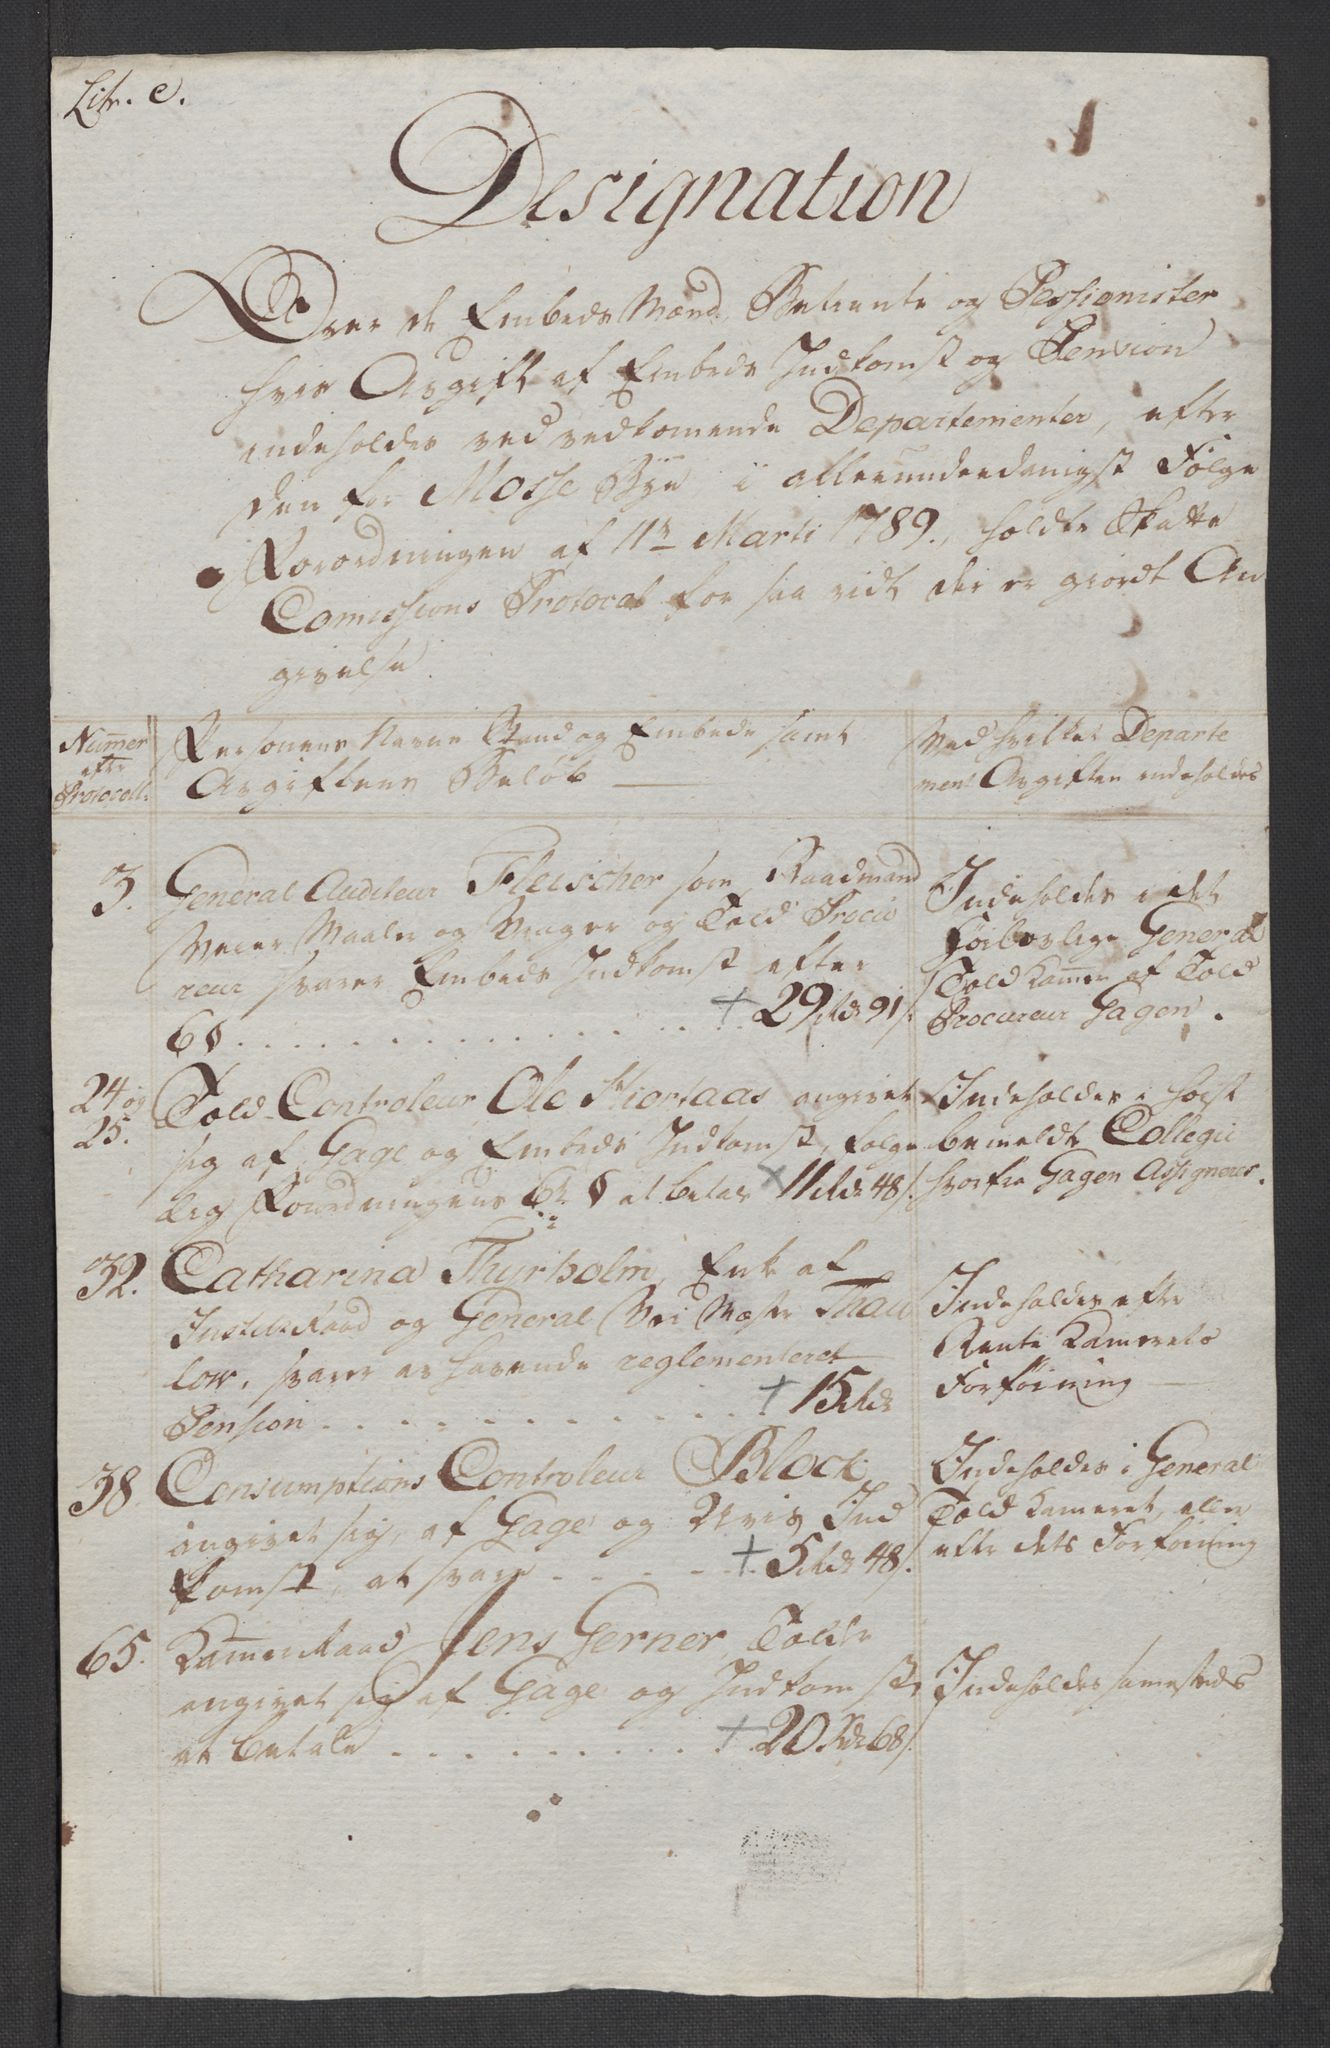 Litr. e.
Designation
Over de Embeds Mænd, Betiente og Penssionister
hvis Avgift af Embeds Indkomst og Pension
indeholdes ved vedkomende Departementer, efter
den for Mosse Bye i allerunderdanigst Følge
Forordningen af 11te Marti 1789. holdte Skatte
Comissions Protocol for saa vidt der er giordt An
givelse.
Numer
efter
Protocoll.
Personens Navne Stand og Embede samt
Avgiftens Beløb
Ved hvilket Departe
ment Avgiften indeholdes
3.
General Auditeur Fleischer som Raadmand
Veier Maaler og Vrager og Told Procu
reur svarer Embeds Indkomst efter
6 § . . . . + 29 rdr 91 s.
Indeholdes i det
Høilovlige General
Told Kammer af Told
Procureur Gagen.
24 og
25.
Told Controleur Ole Hiortaas angivet
sig af Gage og Embeds Indkomst, følge
lig Forordningens 6te § at betale x 11 rdr 48 s.
Indeholdes i høist
bemeldte Collegie
hvorfra Gagen Assigneres.
32.
Catharina Thyrholm, Enke af
Justitz Raad og General Vei Mester Thau
low, svarer av havende reglementeret
Pension . . . . + 15 rdr
Indeholdes efter
Rente Kamerets
Forføining
38.
Consumptions Controleur Block
angivet sig, af Gage og Uvis Ind
komst, at svare . . . + 5 rdr 48 s.
Indeholdes i General
Told Kameret, eller
efter dets Forføining
65.
Kammerraad Jens Gerner, Tolder
angivet sig af Gage og Indkomster
at betale . . . . + 20 Rdr 68 s.
Indeholdes samesteds